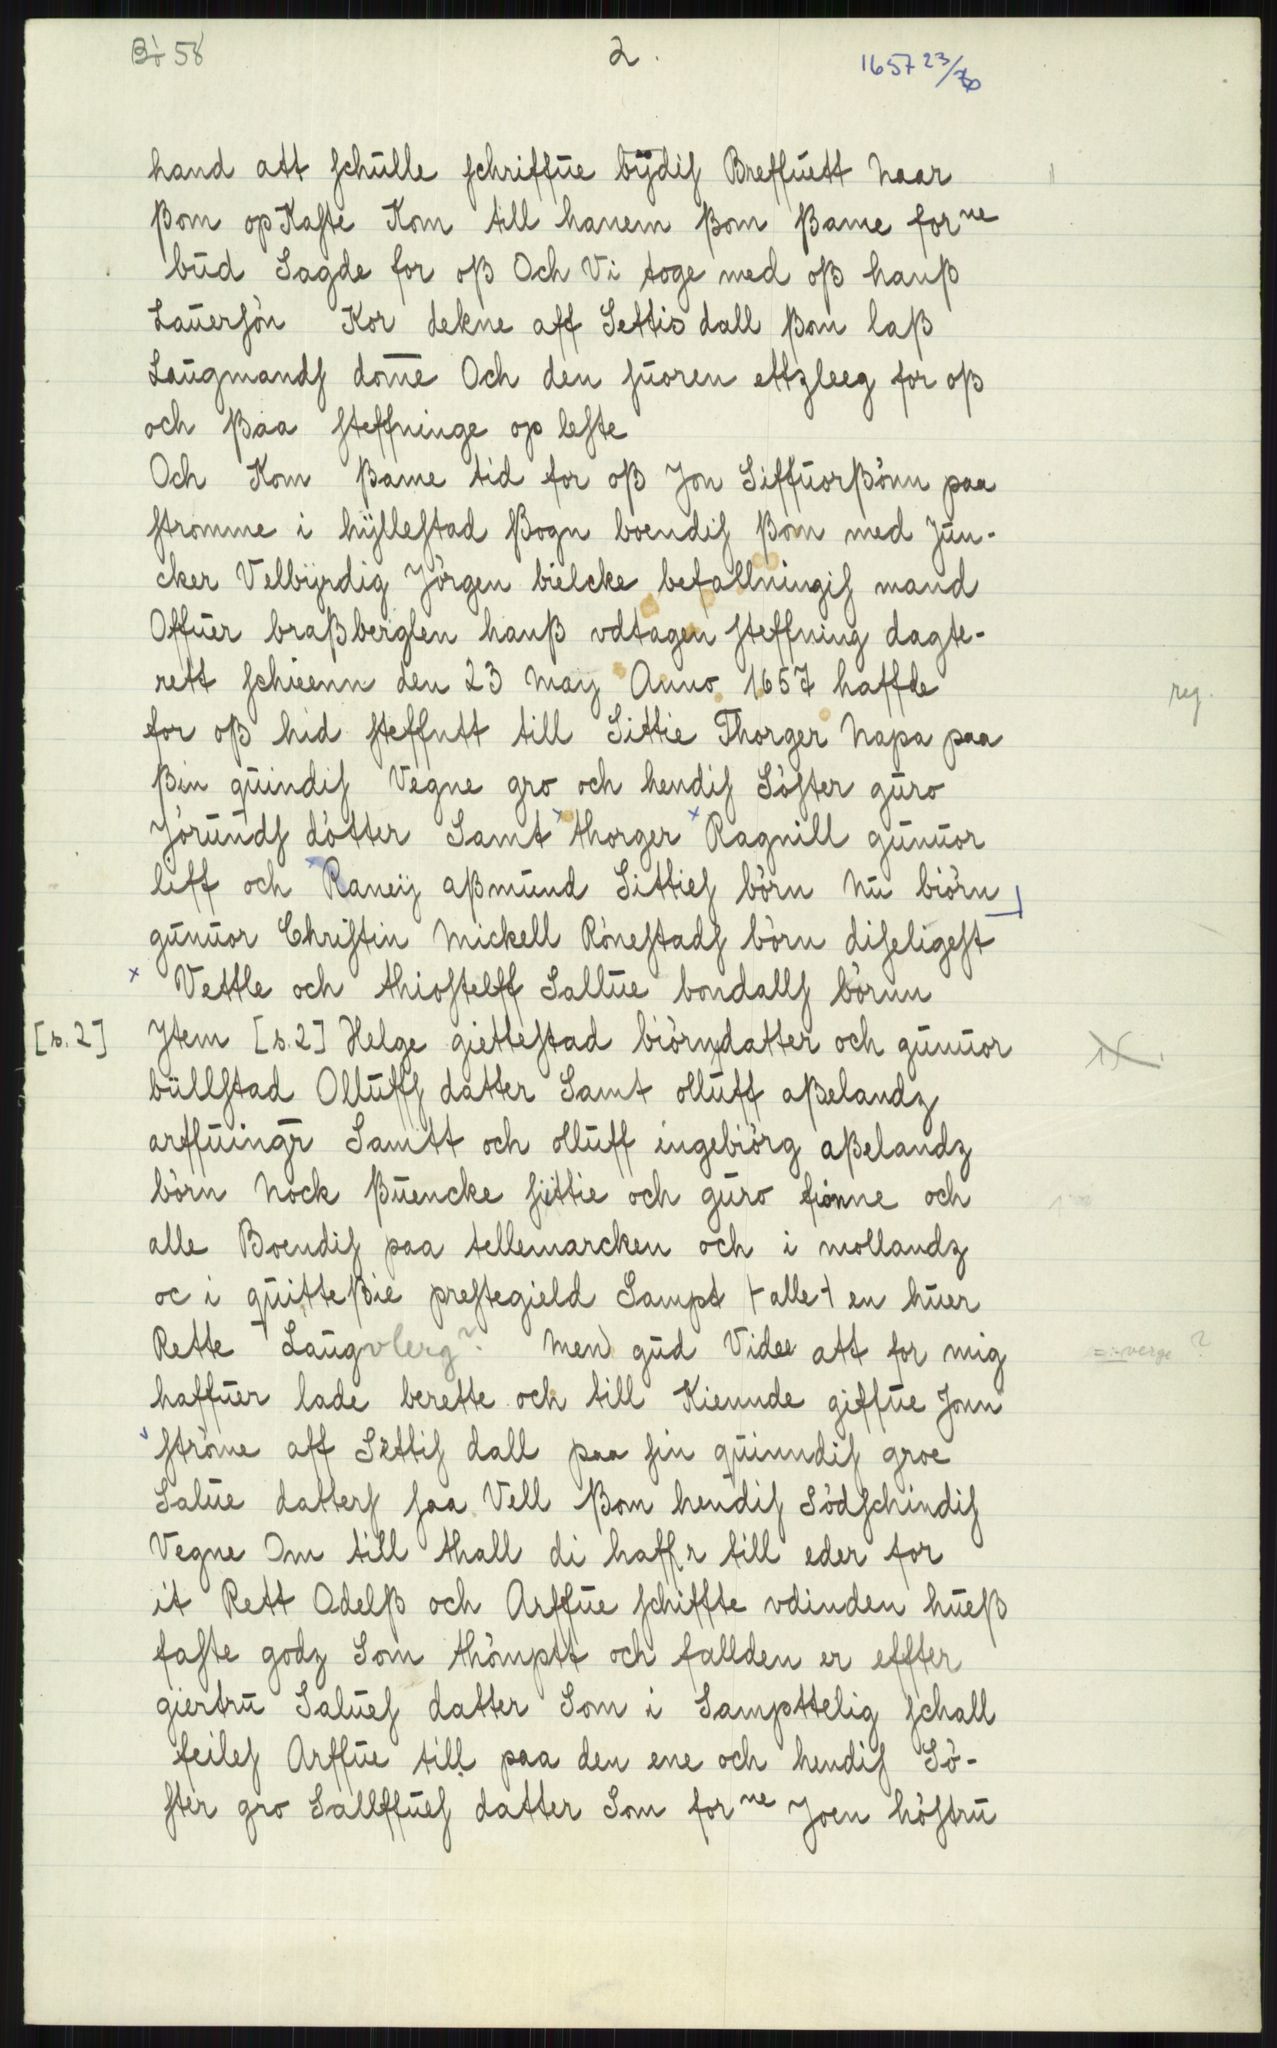 Bø 58
2.
1657 23/
hand att schulle schriffue býdis Breffuett Naar
ßom op Kaste Kom till hanem ßom ßame for ne
bud Sagde for oß Och Vi toge med oß hanß
Lauersøn Kor dekne aff Settis dall ßom laß
Laugmands dom̄e Och den suoren ettzleeg for oß
och ßaa steffninge op leste
Och Kom ßame tid for oß Jon Siffuorßønn paa
stromme i hÿllestad ßogn boendis ßom med Jun-
cker Velbÿrdig Jørgen bielcke befallningis mand
Offuer braßberglen hanß vdtagen steffning dagte-
rett schieenn den 23 Maÿ Anno 1657 haffde
for oß hid steffntt till Sittie Thorger Napa paa
ßin quindis Vegne gro och hendis Søster guro
Jørunds døtter Samt thorger Ragnill gunuor
liff och Raneiÿ aßmund Sitties børn Nu biørn
gunuor Christin Mickell Rønestads børn disligest
Vettle och thiostelff Sallue bondalls børnn
[s. 2] Jtem [s. 2] Helge gjettestad biørndatter och gunuor
büllstad Olluffs datter Samt olluff aßelandz
arffuingr̄ Samtt och olluff ingebiørg aßelandz
børn Nock ßuencke sittie och guro fionne och
alle Boendis paa tellemarcken och i mollandz
oc i quitteßie prestegield Sampt ⊢alle⊣ en huer
Rette Laugvlerg? Men gud Videe att for mig
=:verge ?
haffuer lade berette och till Kiennde giffue Jonn
strøme aff Settis dall paa sin quinndis groe
Salue datters saa Vell ßom hendis Sødschindis
Vegne Om till thall di haffr till eder for
it Rett Odelß och Arffue schiffte vdinden hueß
faste godz Som thømptt och fallden er effter
giertru Salues datter Som i Sampttelig schall
feiles Arffue till paa den ene och hendis Sø-
ster gro Sallffues datter Som for ne Joen høstru
reg.